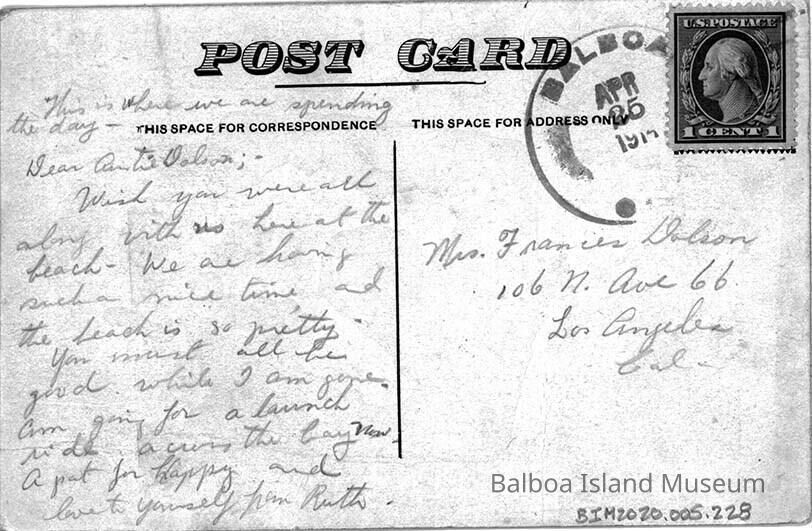 POST CARD
This is where we are spending
the day —
THIS SPACE FOR CORRESPONDENCE
Dear Auntie Dolson; -
Wish you were all
along with us here at the
beach - We are having
such a nice time and
the beach is so pretty.
You must all be
good while I am gone.
Am going for a launch
ride across the bay now.
A pat for Happy and
love to yourself from Ruth.
THIS SPACE FOR ADDRESS ONLY
BALBOA
APR
25
U.S. POSTAGE
1 CENT 1
Mrs. Frances Dolson
106 N. Ave 66.
Los Angeles
Cal -
Balboa Island Museum
BIM2020.005.228